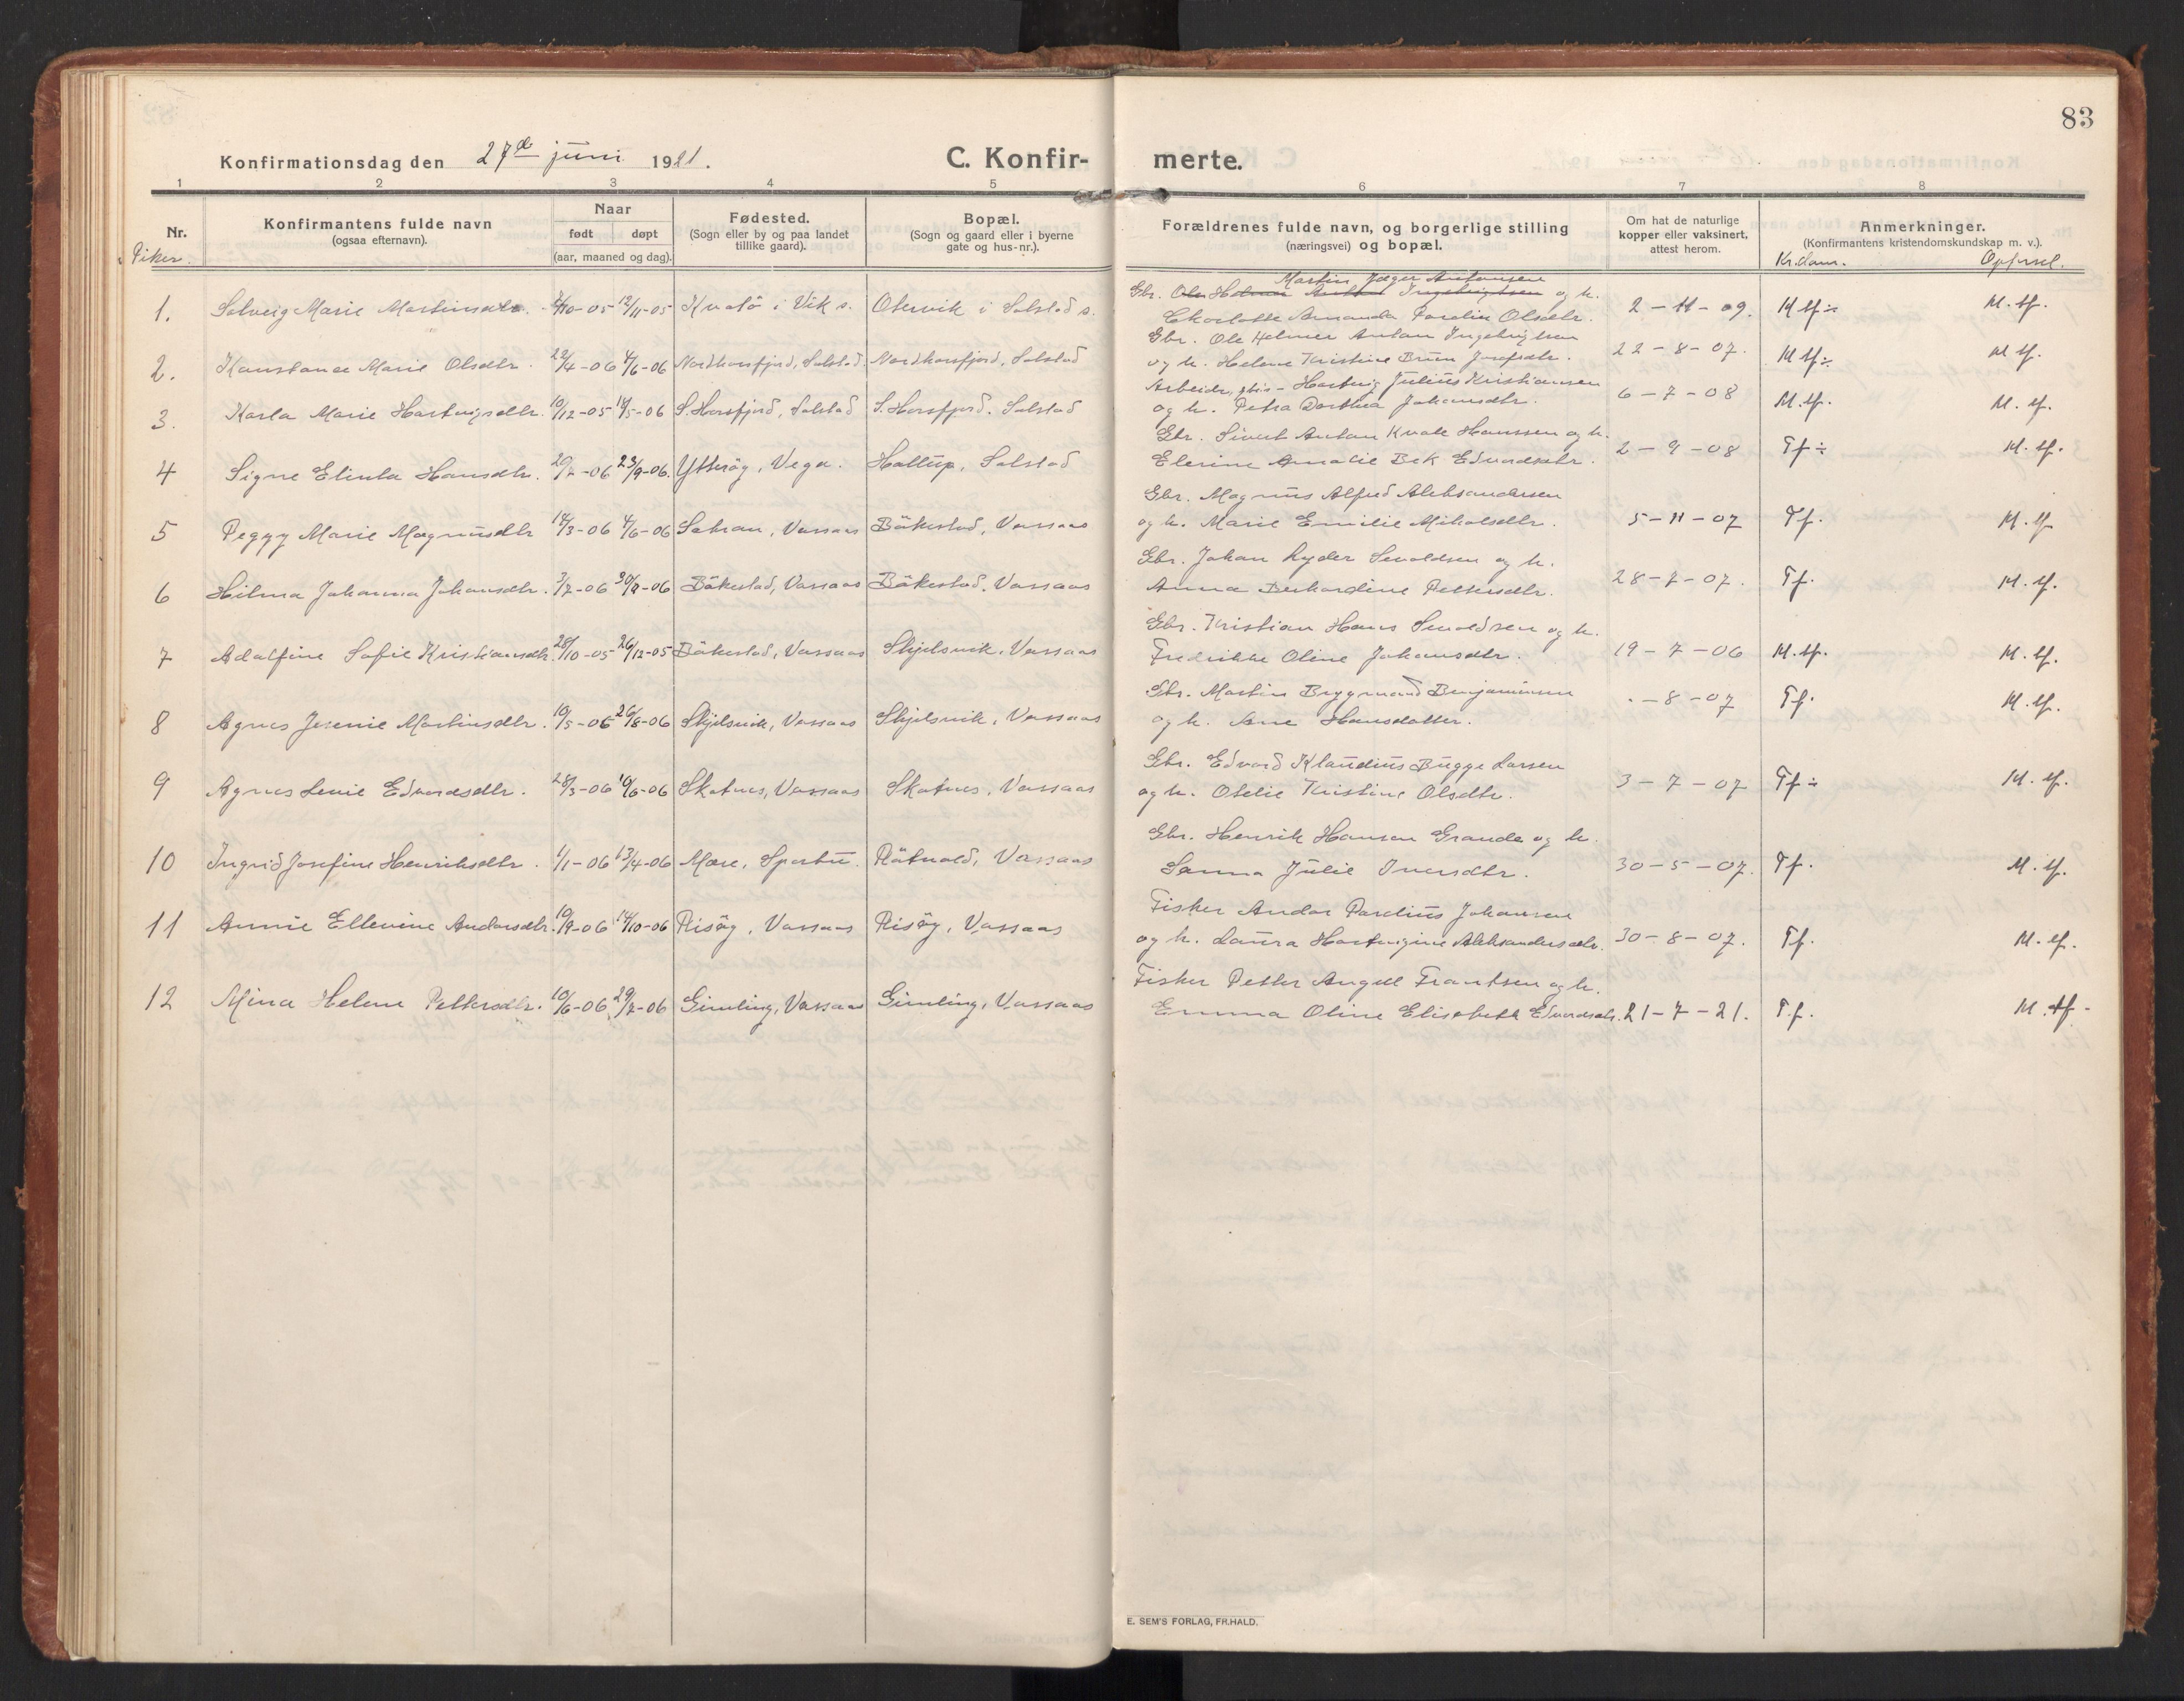 83
Konfirmationsdag den 27de juni 1921.
C. Konfir-
merte.
1 2 3 4 5 6 7 8
Nr.
Piker.
Konfirmantens fulde navn
(ogsaa efternavn).
Naar
født døpt
(aar, maaned og dag).
Fødested.
(Sogn eller by og paa landet
tillike gaard).
Bopæl.
(Sogn og gaard eller i byerne
gate og hus-nr.).
Forældrenes fulde navn, og borgerlige stilling
(næringsvei) og bopæl.
Om hat de naturlige
kopper eller vaksinert,
attest herom.
Anmerkninger.
(Konfirmantens kristendomskundskap m. v.).
Kr.dom. Opførsel.
Martin Jæger Antonsen
1. Solveig Marie Martinsdtr. 12/11-05 Kvalø i Vik s. Otervik i Solstad s. Gbr. Ole Helmer Anton Ingebrigtsen og h. 2-11-09. M tf÷ M. tf.
Charlotte Amanda Parelie Olsdtr.
2. Konstance Marie Olsdtr. 22/4-06 4/6-06 Nordhorsfjord, Solstad. Nordhorsfjord, Solstad Gbr. Ole Helmer Antan Ingebrigtsen 22-8-07. M tf÷ M tf.
og h. Helene Kristine Bruun Josefsdtr.
3. Karla Marie Hartvigsdtr. 10/12-05 14/5-06 S. Horsfjord, Solstad S. Horsfjord, Solstad Arbeider, fhv- Hartvig Julius Kristiansen 6-7-08 M. tf. M. tf.
og h. Petra Dorthea Johansdtr.
4 Signe Elinta Hansdtr. 20/7-06 23/9-06. Ytterøy, Vega. Hattup, Solstad Gbr. Sivert Antan Kvale Hanssen og h. 2-9-08 Tf÷ M. tf.
Elerine Amalie Bek Edvardsdtr.
5 Peggy Marie Magnusdtr 14/3-06 4/6-06 Sakran, Vassaas Bökestad, Vassaas Gbr. Magnus Alfred Aleksandersen 5-11-07 Tf. M. tf.
og h. Marie Emilie Mikalsdtr.
6 Hilma Johanna Johansdtr. 3/7-06 30/9-06 Bökestad, Vassaas Bökestad, Vassaas Gbr. Johan Lyder Sevaldsen og h. 28-7-07. Tf. M. tf.
Anna Berhardine Pettersdtr.
7 Adalfine Sofie Kristiansdtr. 28/10-05 26/12-05 Bökestad, Vassaas Skjelsvik, Vassaas Gbr. Kristian Hans Sevaldsen og h. 19-7-06 M. tf. M. tf.
Fredrikke Oline Johansdtr.
8 Agnes Jesenie Martinsdtr. 10/5-06 26/8-06 Skjelsvik, Vassaas Skjelsvik, Vassaas Gbr. Martin Brygmand Benjaminsen .-8-07 Tf. M. tf.
og h. Ane Hansdatter.
9 Agnes Lenie Edvardsdtr. 28/3-06 10/6-06 Skotnes, Vassaas Skotnes, Vassaas Gbr. Edvard Klaudius Bugge Larsen 3-7-07 Tf÷ M. tf.
og h. Otelie Kristine Olsdtr.
10 Ingrid Josefine Henriksdtr. 1/1-06 13/4-06 Mære, Sparbu. Røtvold, Vassaas Gbr. Henrik Hansen Grande og h. 30-5-07. Tf. M. tf.
Sanna Julie Iversdtr.
11 Annie Ellevine Andorsdtr. 10/9-06 14/10-06 Risøy, Vassaas Risøy, Vassaas Fisker Andor Parelius Johansen 30-8-07. Tf. M. tf.
og h. Laura Hartvigine Aleksandersdtr.
12 Mina Helene Pettersdtr. 10/6-06 29/7-06 Gimling, Vassaas Gimling, Vassaas Fisker Petter Angell Frantsen og h. 21-7-21. T.f. M. tf.
Emma Oline Elisabeth Edvardsdtr.
E. SEM'S FORLAG, FR.HALD.